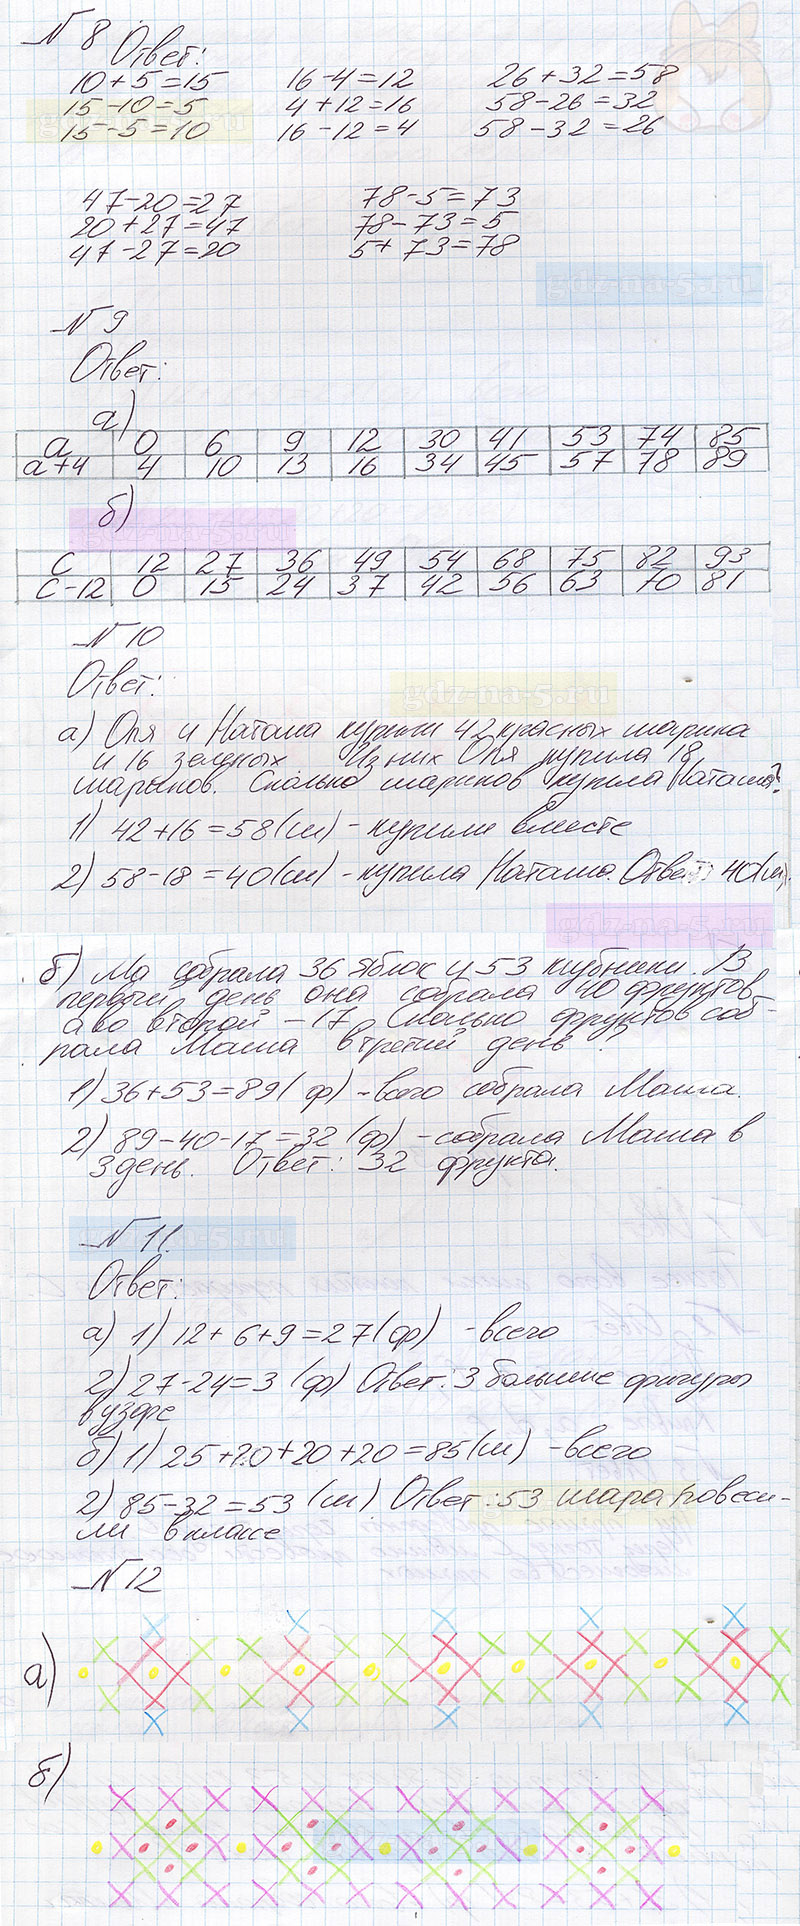 № 8 Ответ:
10+5=15 16-4=12 26+32=58
15-10=5 4+12=16 58-26=32
15-5=10 16-12=4 58-32=26
47-20=27 78-5=73
20+27=47 78-73=5
47-27=20 5+73=78
gdz-na-5.ru
№ 9
Ответ:
а)
а 0 6 9 12 30 41 53 74 85
а+4 4 10 13 16 34 45 57 78 89
б)
gdz-na-5.ru
С 12 27 36 49 54 68 75 82 93
С-12 0 15 24 37 42 56 63 70 81
№ 10
Ответ:
gdz-na-5.ru
а) Оля и Наташа купили 42 красных шарика
и 16 зеленых Из них Оля купила 18
шариков. Сколько шариков купила Наташа?
1) 42+16=58(ш) - купили вместе
2) 58-18=40(ш) - купила Наташа. Ответ: 40(ш).
gdz-na-5.ru
б) Ма собрала 36 яблок и 53 клубники. В
первый день она собрала 40 фруктов,
а во второй - 17. Сколько фруктов соб-
рала Маша в третий день?
1) 36+53=89(ф) - всего собрала Маша.
2) 89-40-17=32 (ф) - собрала Маша в
3 день. Ответ: 32 фрукта.
№ 11.
Ответ:
а) 1) 12+6+9=27(ф) - всего
2) 27-24=3 (ф) Ответ: 3 большие фигуры
в узоре
б) 1) 25+20+20+20=85(ш) - всего
2) 85-32=53 (ш) Ответ: 53 шара повеси-
ли в классе
№ 12
а)
б)